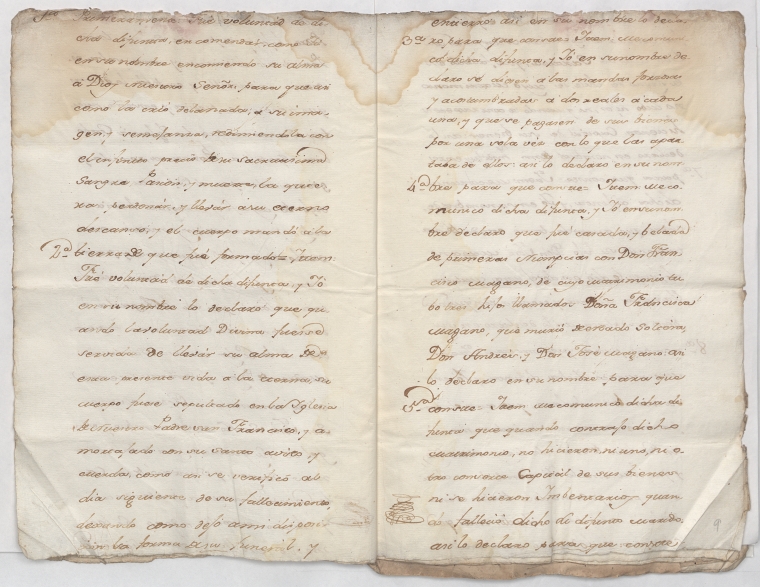 Primeramente fué voluntad de di
cha difunta, encomendár, como Yó
en su nombre encomiendo su alma
á Dios Nuestro Señor, para que asi
como la crió de la nada, á su ima
gen, y semejansa, redimiendola con
el infinito precio de su Sacratissima
Sangre Pasion, y muerte, la quie
ra perdonár, y llevár á su eterno
descanso, y el cuerpo mandó á la
2ª tierra de que fué formado= Ytem:
Fué voluntad de dicha difunta, y Yó
en su nombre lo declaro que qu
ando la voluntad Divina fuese
servida de llevár su alma de
esta presente vida á la eterna, su
cuerpo fuese sepultado en la Yglecia
de Nuestro Padre San Francisco, y a
mortajado con su santo avito, y
cuerda, como asi se verificó al
dia siguiente de su fallecimiento,
dexando como dejó á mi dispoci
cion la forma de su funeral, y
entierro: asi en su nombre lo decla
3ª ro, para que conste= Ytem: me comuni
có dicha difunta, y Yó en su nombre de
claro se dieren á las mandas forsosas
y acostumbradas á dos reales á cada
una, y que se paguen de sus bienes
por una sola vés con lo que las apar
taba de ellos: asi lo declaro en su nom
4ª bre para que conste= Ytem: me co
munico dicha difunta, y Yó en su nom
bre declaro que fué casada, y belada
de primeras Nupcias con Don Fran
cisco Magano, de cuyo matrimonio tu
bo tres hijos llamados Doña Francisca
Magano, que murió de estado Soltera,
Don Andres, y Don José Magano: asi
lo declaro en su nombre para que
5ª conste= Ytem: me comunicó dicha di
funta que quando contrajo dicho
matrimonio, no hicieron, ni uno, ni o
tro consorte Capital de sus bienes
ni se hicieron Imbentarios quan
do falleció dicho su difunto marido,
asi lo declaro para que conste,